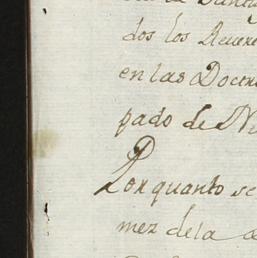 dos los Revere
en las Doctr
pado de Nu
Porquanto se
mez de la